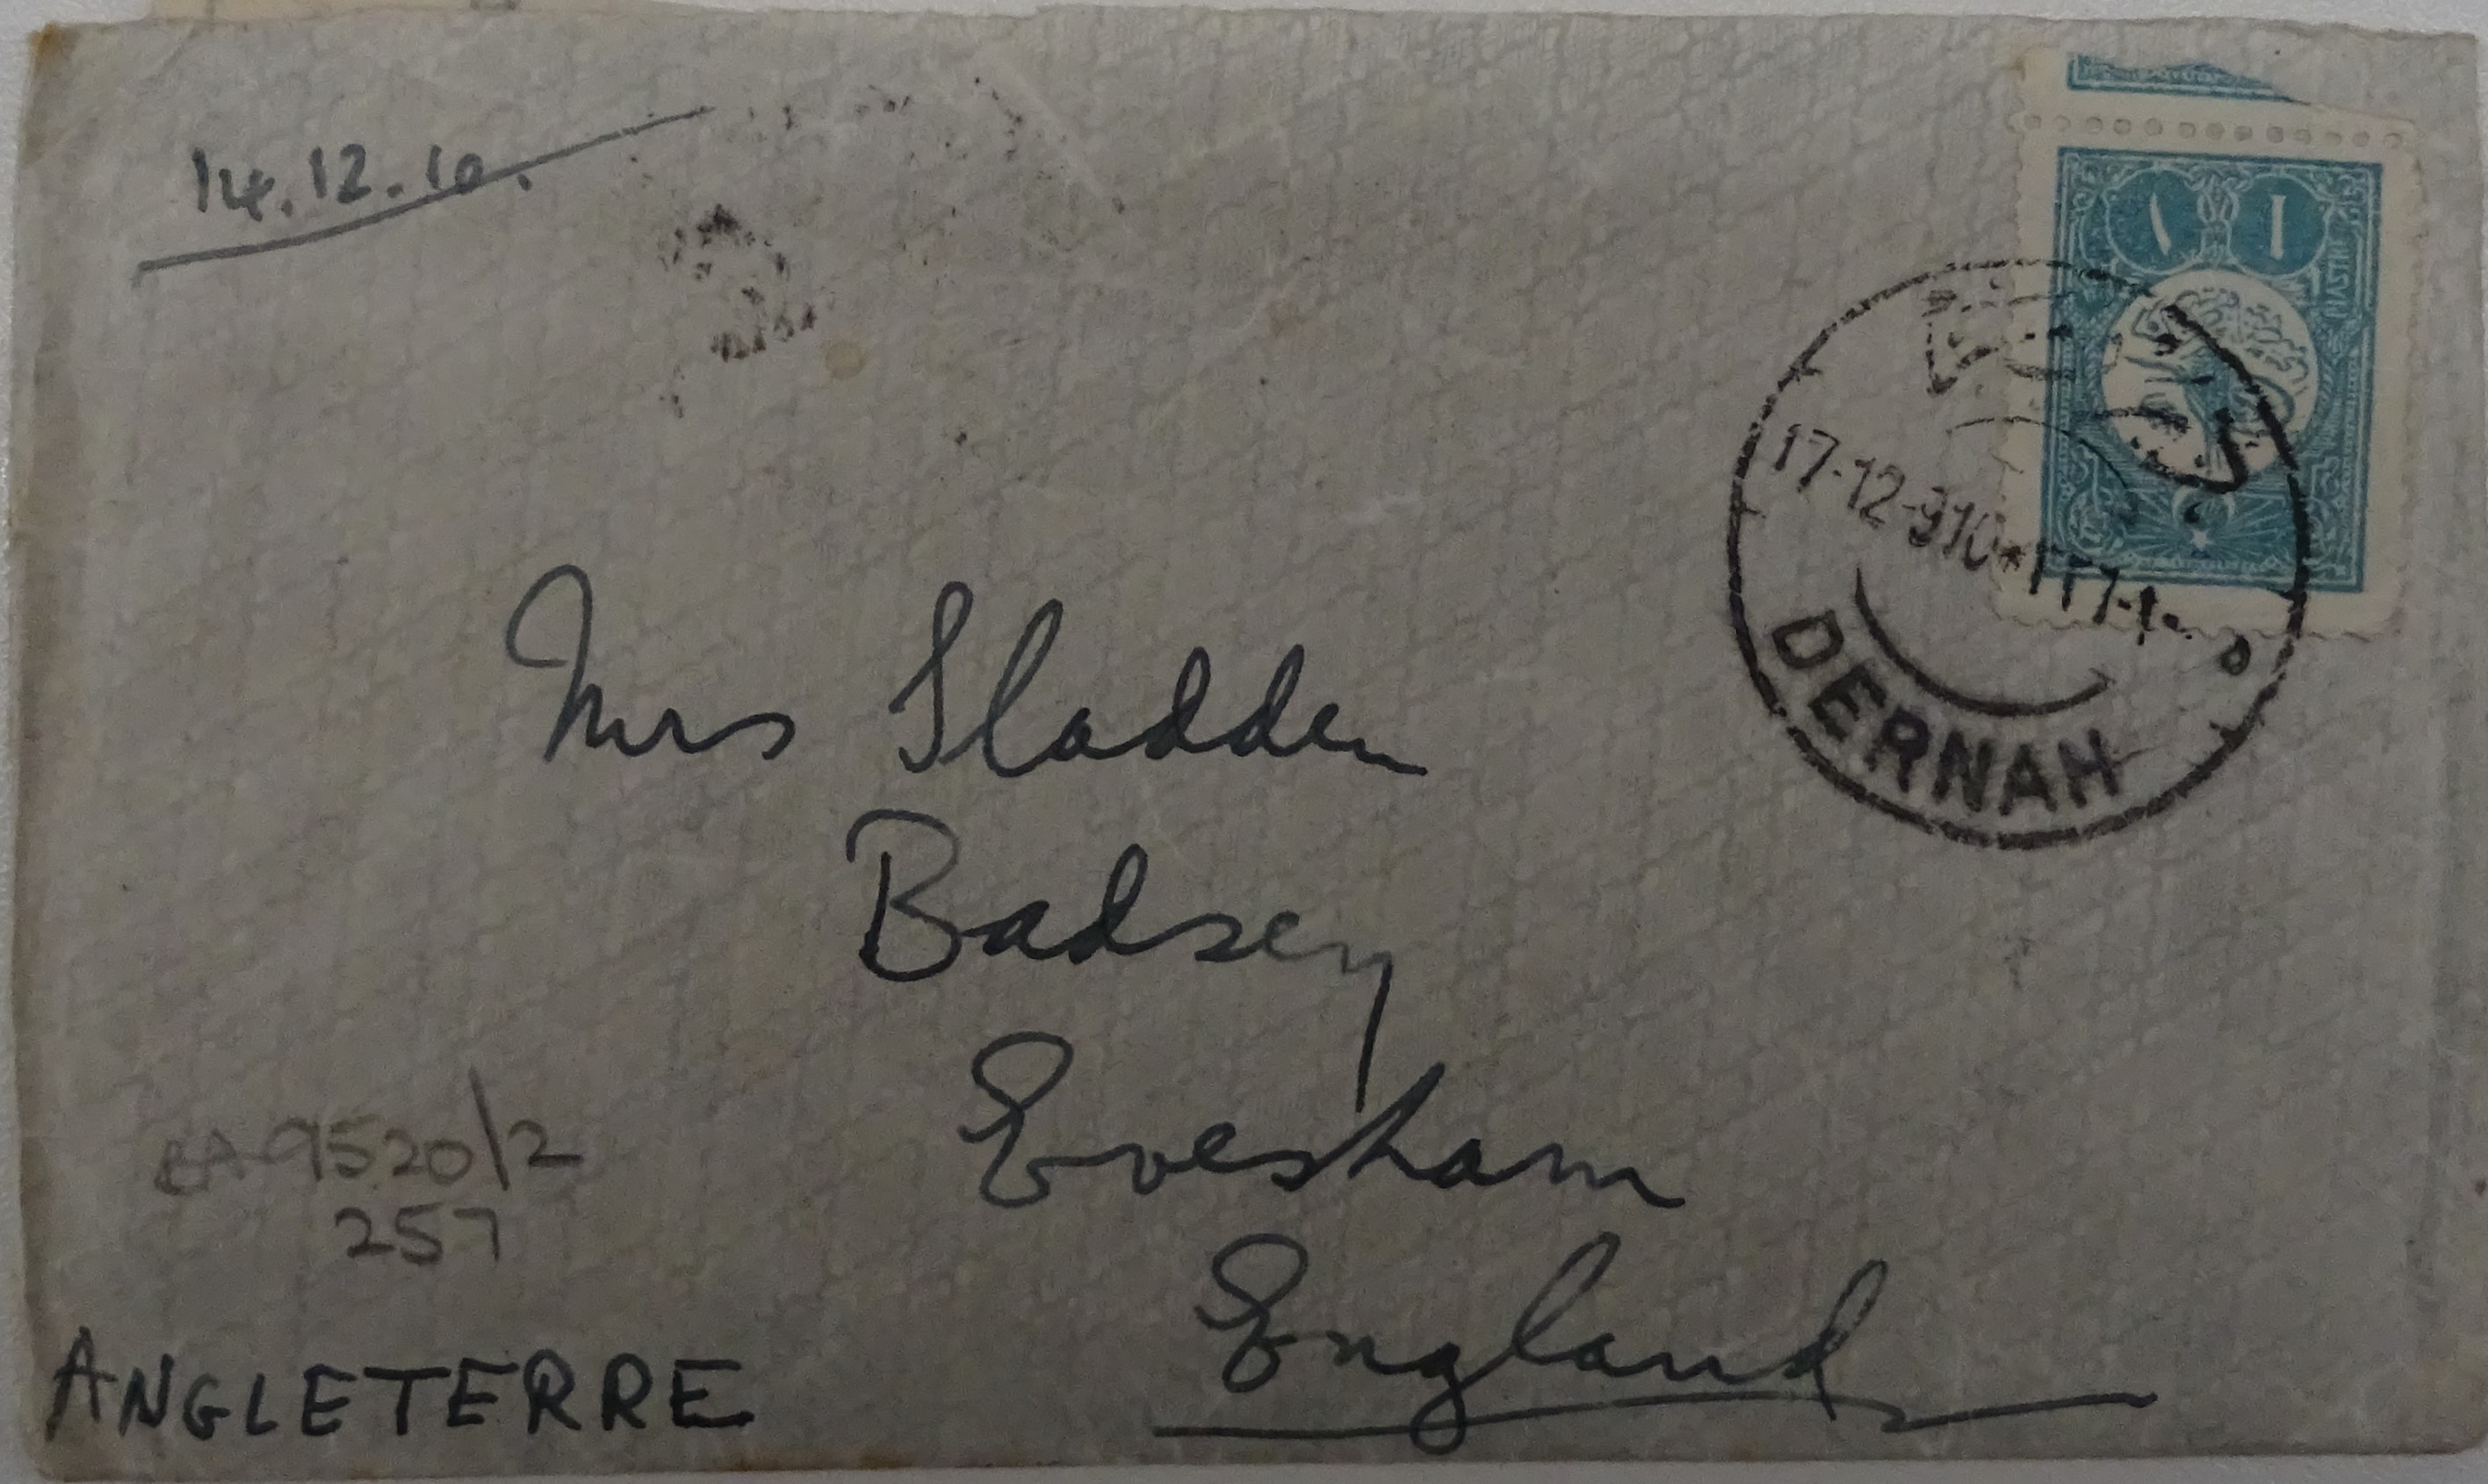 14.12.10.
١ 1
PIASTRE
17-12-910*
DERNAH
Mrs Sladden
Badsey
Evesham
England
EA 9520/2
257
ANGLETERRE